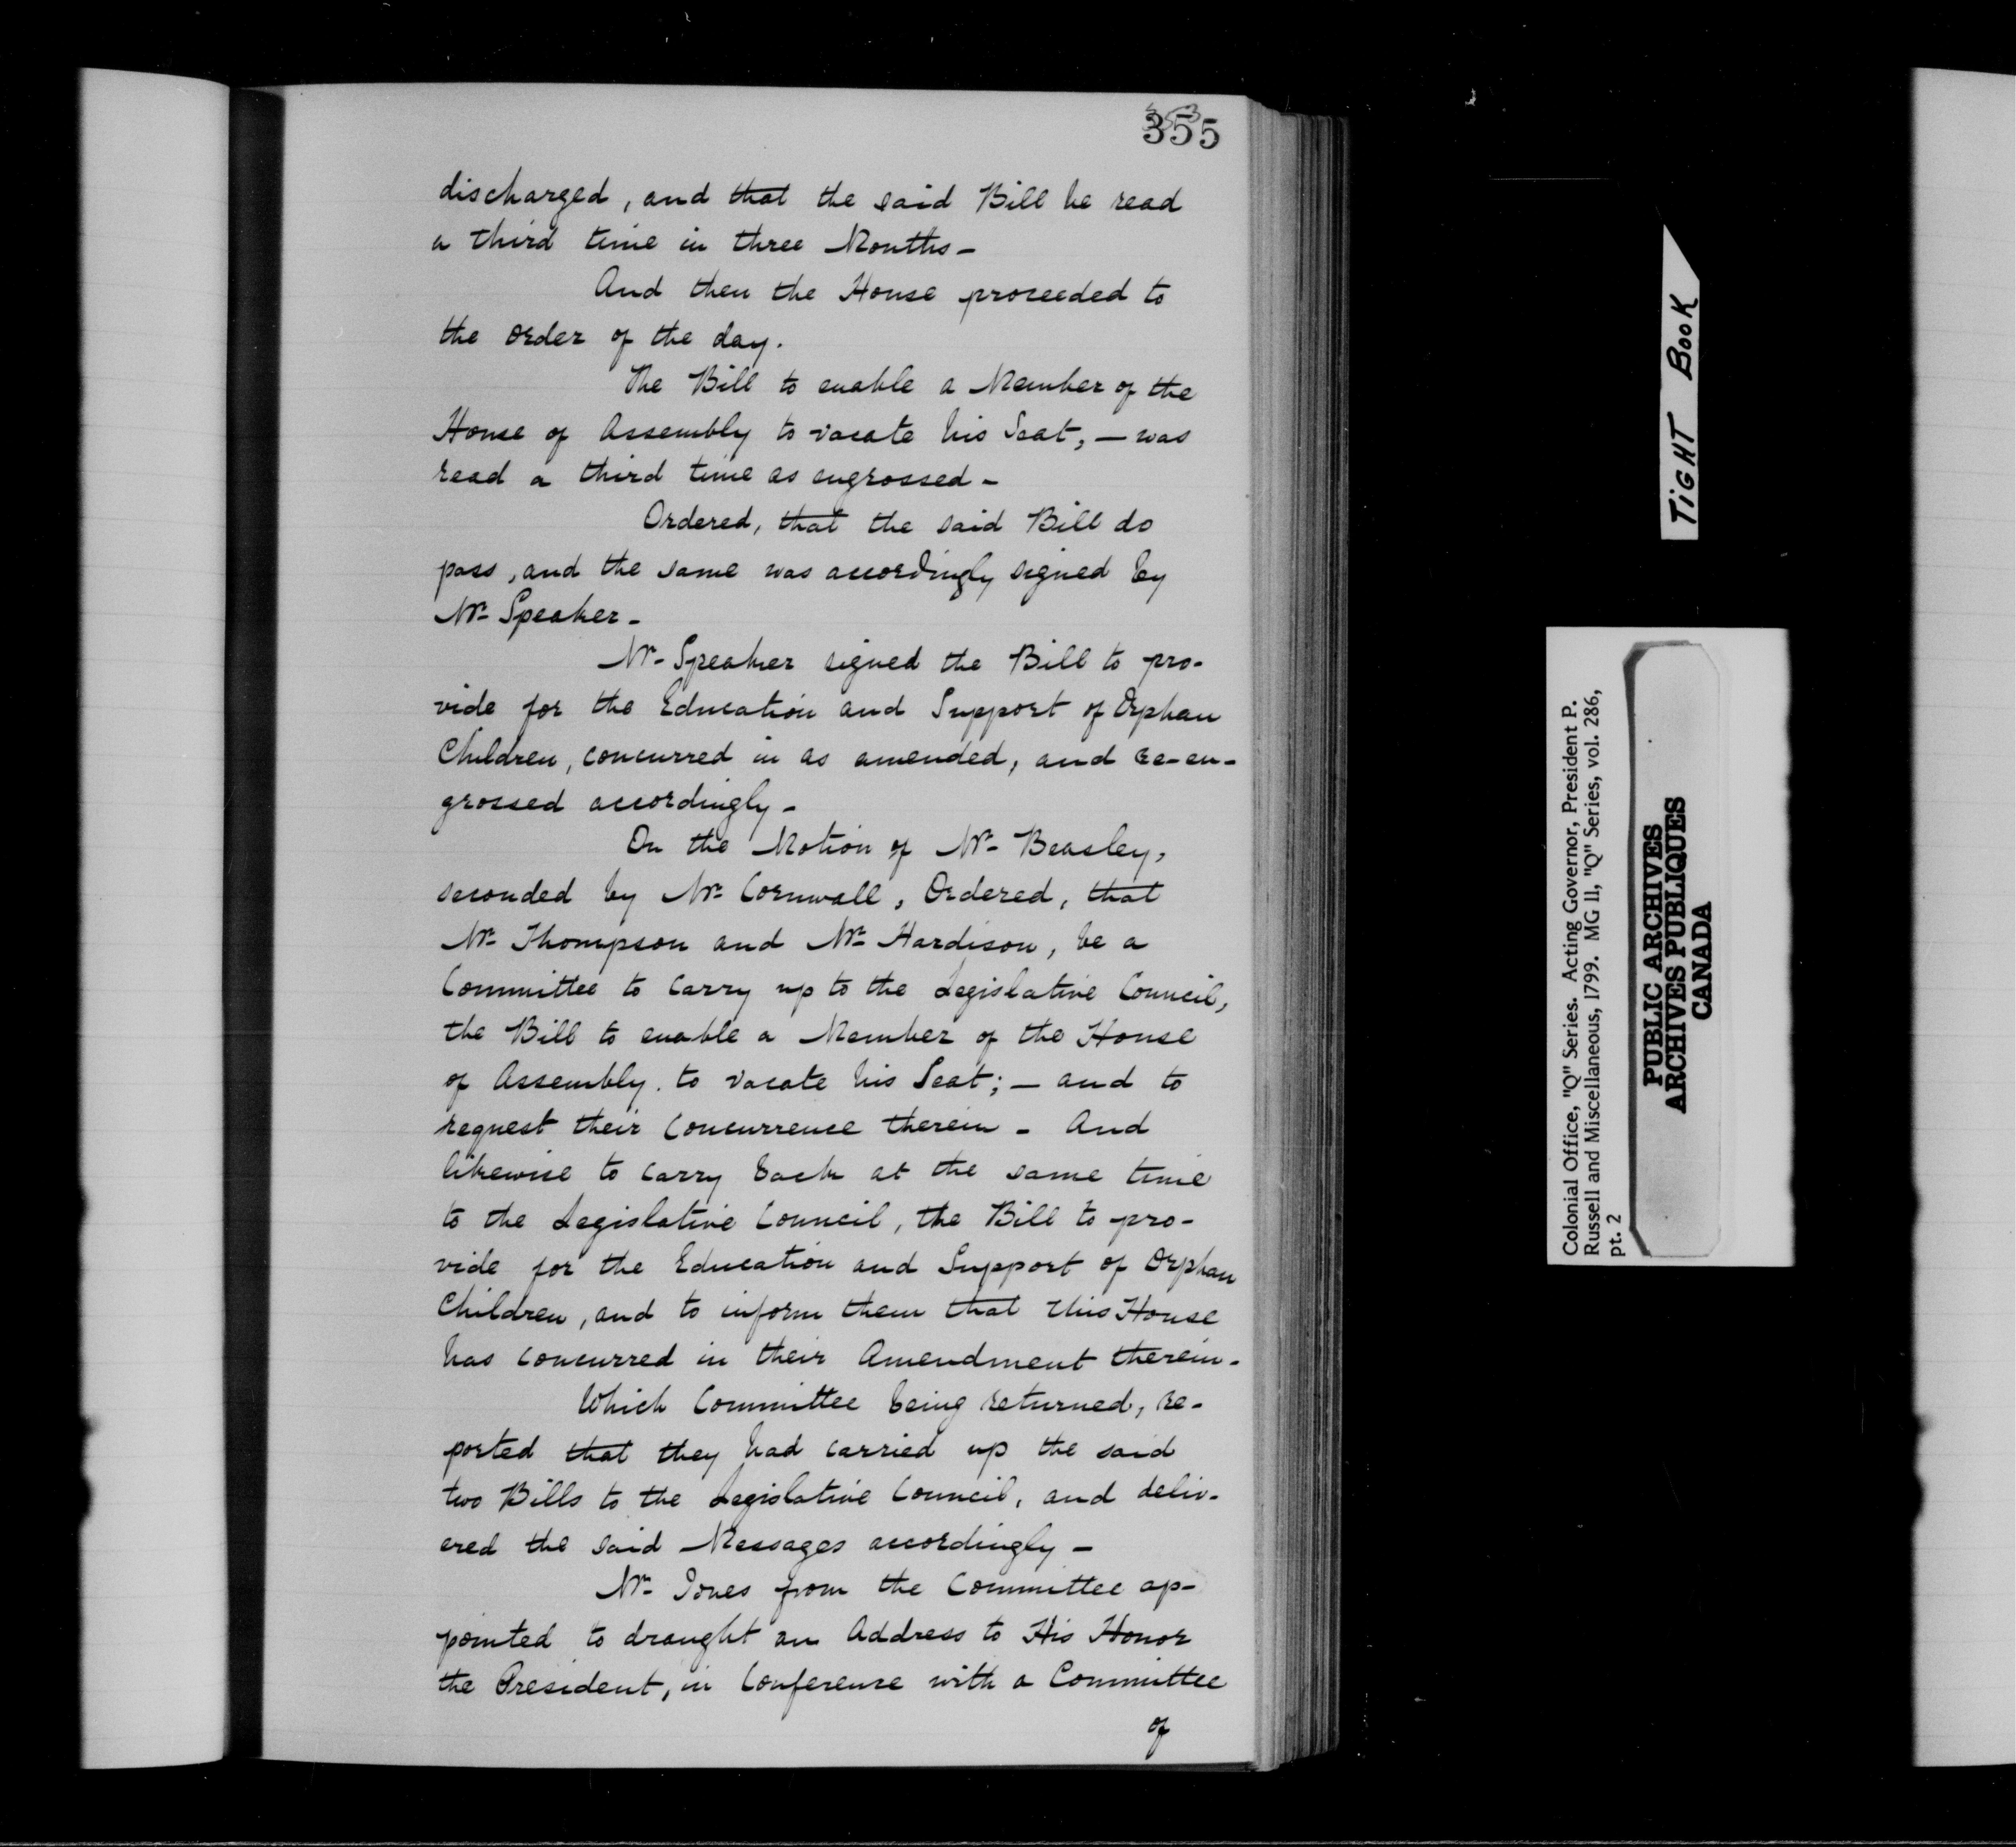 355
discharged, and that the said Bill be read
a third time in three Months –
And then the House proceeded to
the order of the day.
The Bill to enable a Member of the
House of Assembly to vacate his Seat, – was
read a third time as engrossed –
Ordered, that the said Bill do
pass, and the same was accordingly signed by
Mr. Speaker –
Mr. Speaker signed the Bill to pro-
vide for the Education and Support of Orphan
Children, concurred in as amended, and re-en-
grossed accordingly –
On the Motion of Mr. Beasley,
seconded by Mr. Cornwall, Ordered, that
Mr. Thompson and Mr. Hardison, be a
Committee to carry up to the Legislative Council,
the Bill to enable a Member of the House
of Assembly. to vacate his Seat; – and to
request their concurrence therein – And
likewise to carry back at the same time
to the Legislative Council, the Bill to pro-
vide for the Education and Support of Orphan
Children, and to inform them that this House
has concurred in their Amendment therein –
Which Committee being returned, re-
ported that they had carried up the said
two Bills to the Legislative Council, and deliv-
ered the said Messages accordingly –
Mr. Jones from the Committee ap-
pointed to draught an Address to His Honor
the President, in Conference with a Committee
of
TIGHT BOOK
Colonial Office, "Q" Series. Acting Governor, President P.
Russell and Miscellaneous, 1799. MG 11, "Q" Series, vol. 286,
pt. 2
PUBLIC ARCHIVES
ARCHIVES PUBLIQUES
CANADA